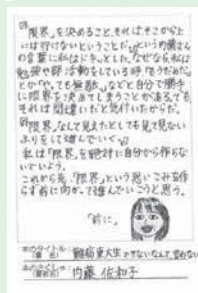 「限界」を決めること、それはそこから上
には行けないということだ。」という内藤さん
の言葉に私はドキッとした。なぜなら私は
勉強や部活動をしている時「もうだめだ」
とか「や、ても無駄」など自分で勝手
に限界を決めてしまうことがあるが
それは間違いだと気付いたからだ。
「限界」なんて見えたとしても見て見ない
ふりをして進んでいく。
私は「限界」を絶対に自分から作らな
いでいよう。
これから先「限界」という思いこみを作
らず前に向かって進んでいこうと思う。
「前に」
本のタイトル
難病東大生
できないなんて、言わない
内藤 佐和子